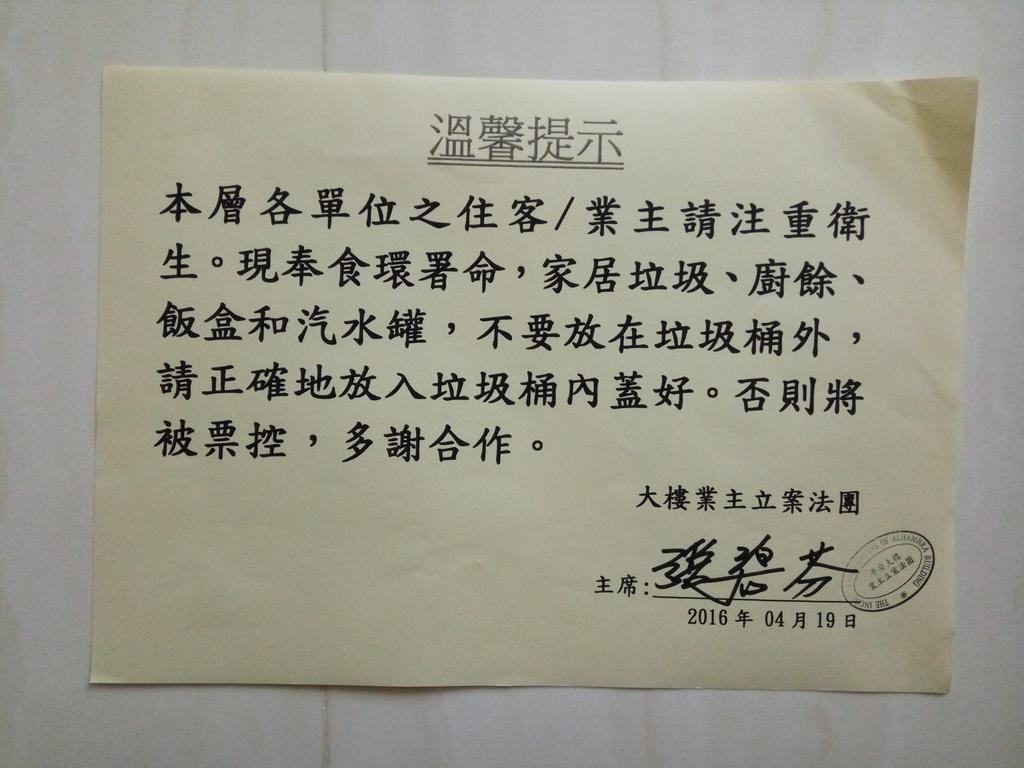 溫馨提示
本層各單位之住客/業主請注重衛
生。現奉食環署命，家居垃圾、廚餘、
飯盒和汽水罐，不要放在垃圾桶外，
請正確地放入垃圾桶內蓋好。否則將
被票控，多謝合作。
大樓業主立案法團
主席:
2016年 04月19日
THE INC OF ALHAMBRA BUILDING
平安大樓
業主立案法團